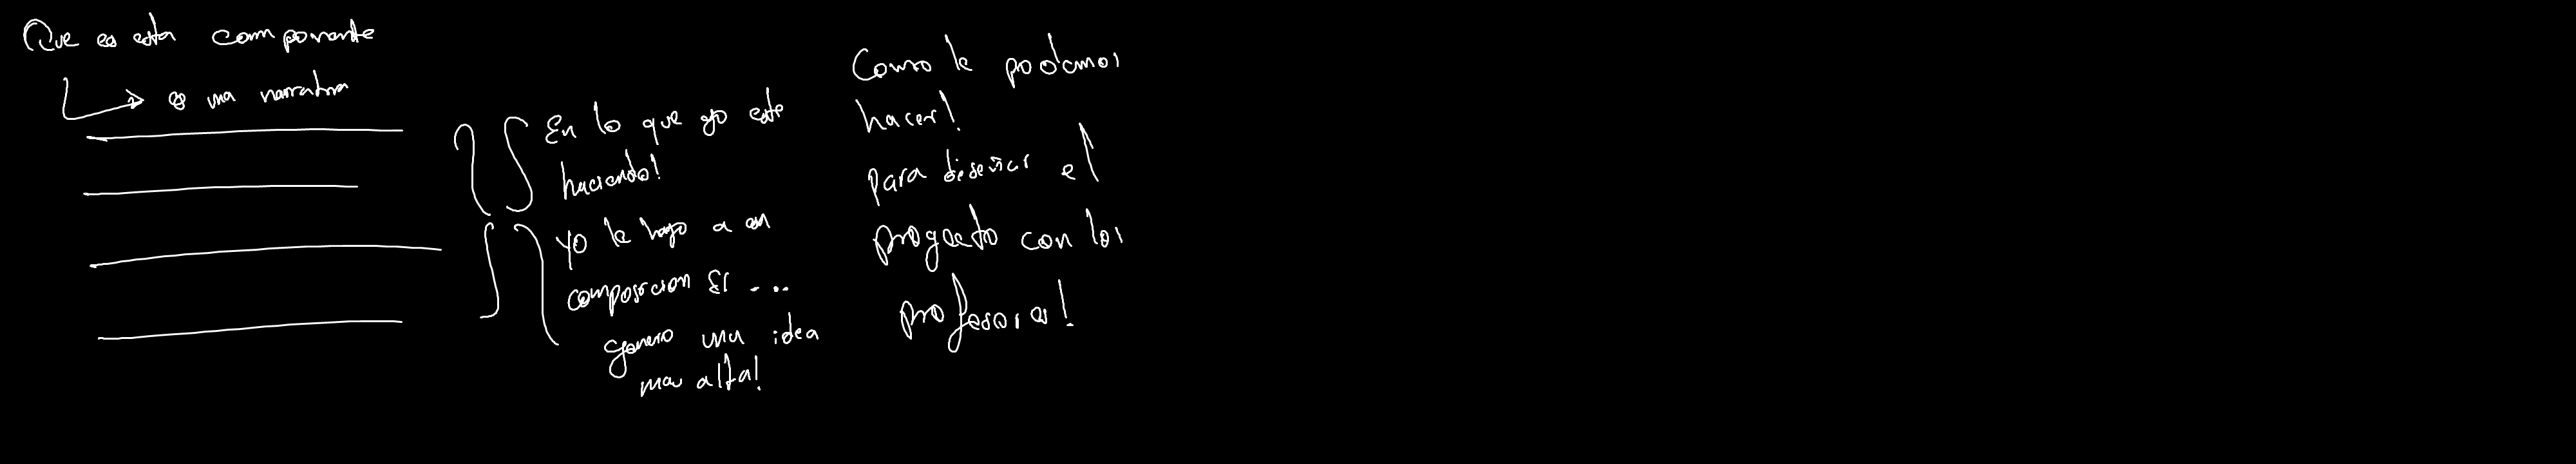 Que es esta componente
es una narrativa
En lo que yo este
haciendo!
Yo le hago a en
composicion El ...
genero una idea
mas alta!
Como le podemos
hacer!
para diseñar el
proyecto con los
profesores!